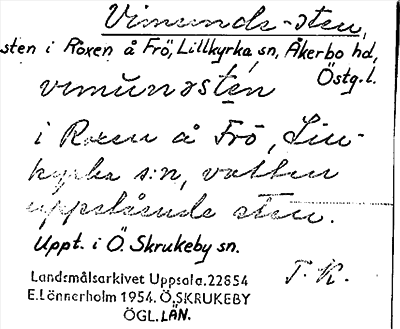 Vimunda-sten,
sten i Roxen å Frö, Lillkyrka sn, Åkerbo hd,
Östg.l.
vimunásten
i Roxen å Frö, Lin-
kyrka s:n, vatten
uppstående sten.
Uppt. i Ö. Skrukeby sn.
T. K.
Landsmålsarkivet Uppsala. 22854
E. Lönnerholm 1954. Ö. SKRUKEBY
ÖGL. LÄN.